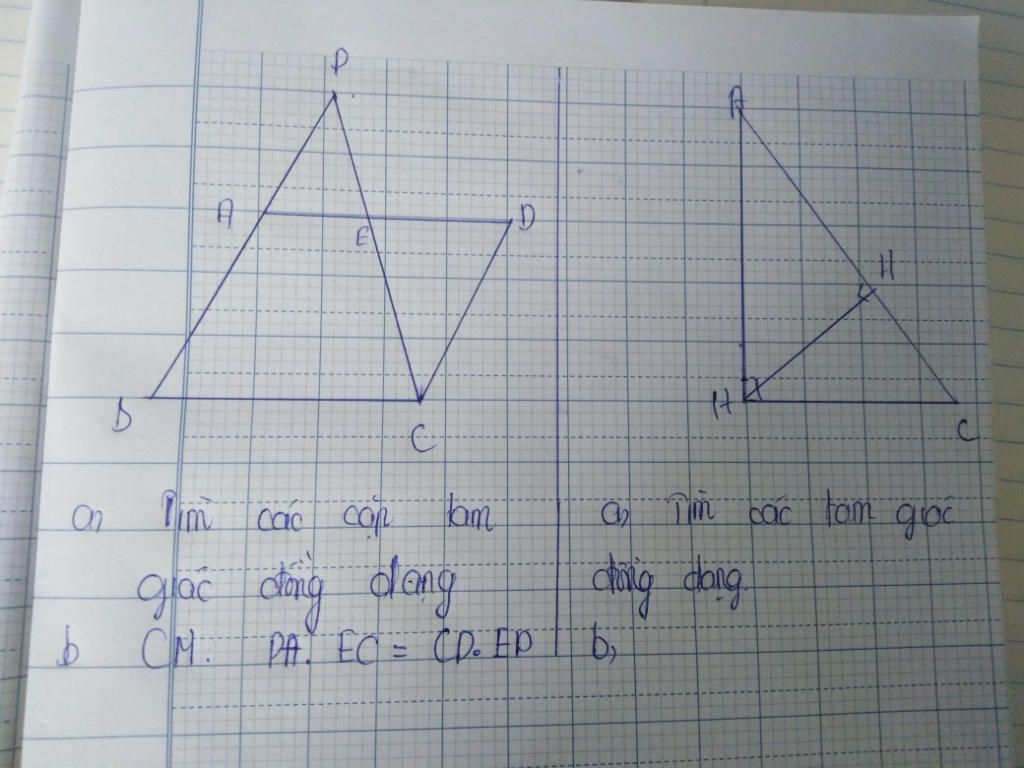 P
A
E
D
B
C
A
H
H
C
a, Tìm các cặp tam
giác đồng dạng
b CM. PA. EC = CD. EP
a, Tìm các tam giác
đồng dạng.
b,